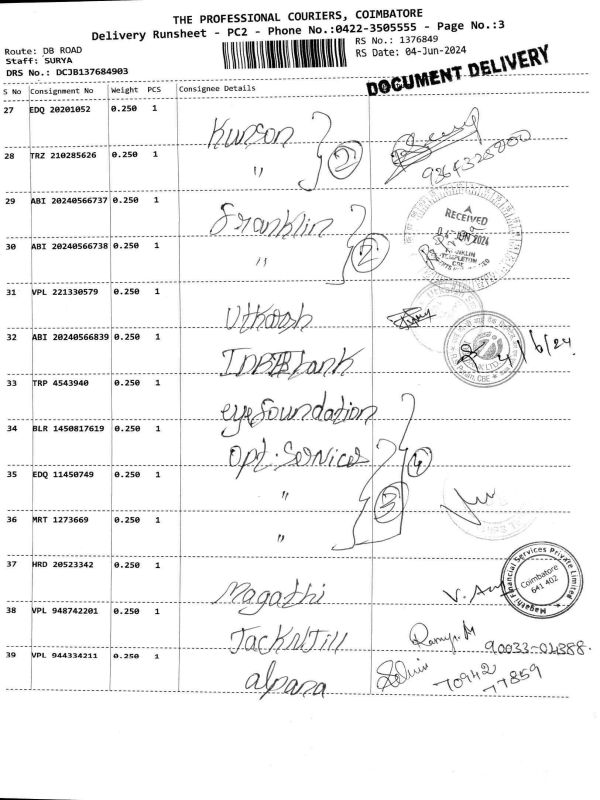 THE PROFESSIONAL COURIERS, COIMBATORE
Delivery Runsheet - PC2 - Phone No.:0422-3505555 - Page No.:3
Route: DB ROAD
RS No.: 1376849
Staff: SURYA
RS Date: 04-Jun-2024
DRS No.: DCJB137684903
DOCUMENT DELIVERY
S No Consignment No Weight PCS Consignee Details
27 EDQ 20201052 0.250 1
Kurson
28 TRZ 210285626 0.250 1
" 2
29 ABI 20240566737 0.250 1
Franklin
RECEIVED
JUN 2024
30 ABI 20240566738 0.250 1
" 2
31 VPL 221330579 0.250 1
Utkash
32 ABI 20240566839 0.250 1
bank
4/6/24.
33 TRP 4543940 0.250 1
eyefoundation
34 BLR 1450817619 0.250 1
Opt. Services 4
35 EDQ 11450749 0.250 1
" 3
36 MRT 1273669 0.250 1
"
37 HRD 20523342 0.250 1
Magathi
Magathi Financial Services Private Limited
Coimbatore
641 402
38 VPL 948742201 0.250 1
JackNJill
Ramya. M
90033-04388.
39 VPL 944334211 0.250 1
alpana
70942
77859